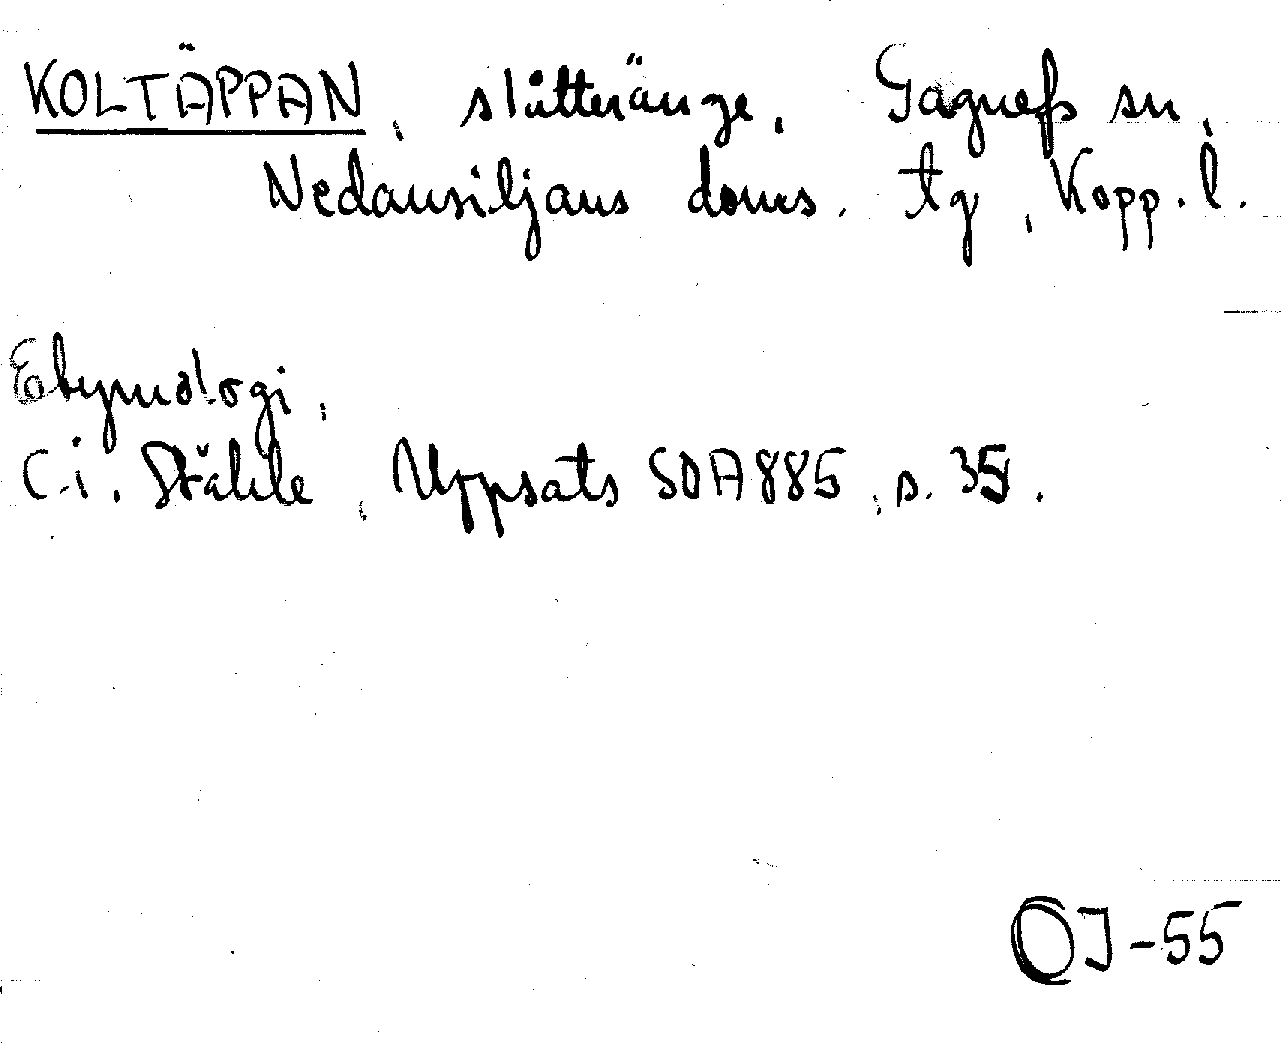 KOLTÄPPAN, slåtteränge, Gagnefs sn,
Nedansiljans doms. tg, Kopp. l.
Etymologi,
C.i. Ståhle, Uppsats SOA885, s. 35.
OJ-55